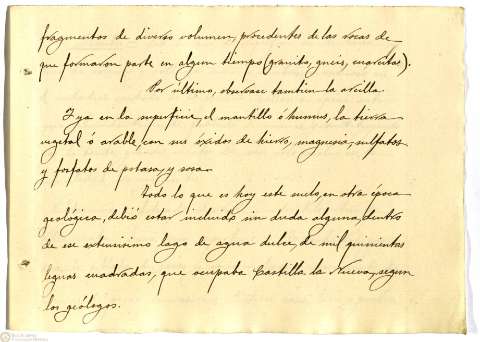 fragmentos de diverso volumen, procedentes de las rocas de
que formaron parte en algun tiempo (granito, gneis, cuarcitas).
Por último, observase tambien la arcilla.
Y ya en la superficie, el mantillo ó humus, la tierra
vegetal ó arable, con sus óxidos de hierro, magnesia, sulfatos
y fosfatos de potasa, y sosa.
Todo lo que es hoy este suelo, en otra época
geológica, debió estar incluido sin duda alguna, dentro
de ese extensísimo lago de agua dulce, de mil quinientas
leguas cuadradas, que ocupaba Castilla la Nueva, segun
los geólogos.